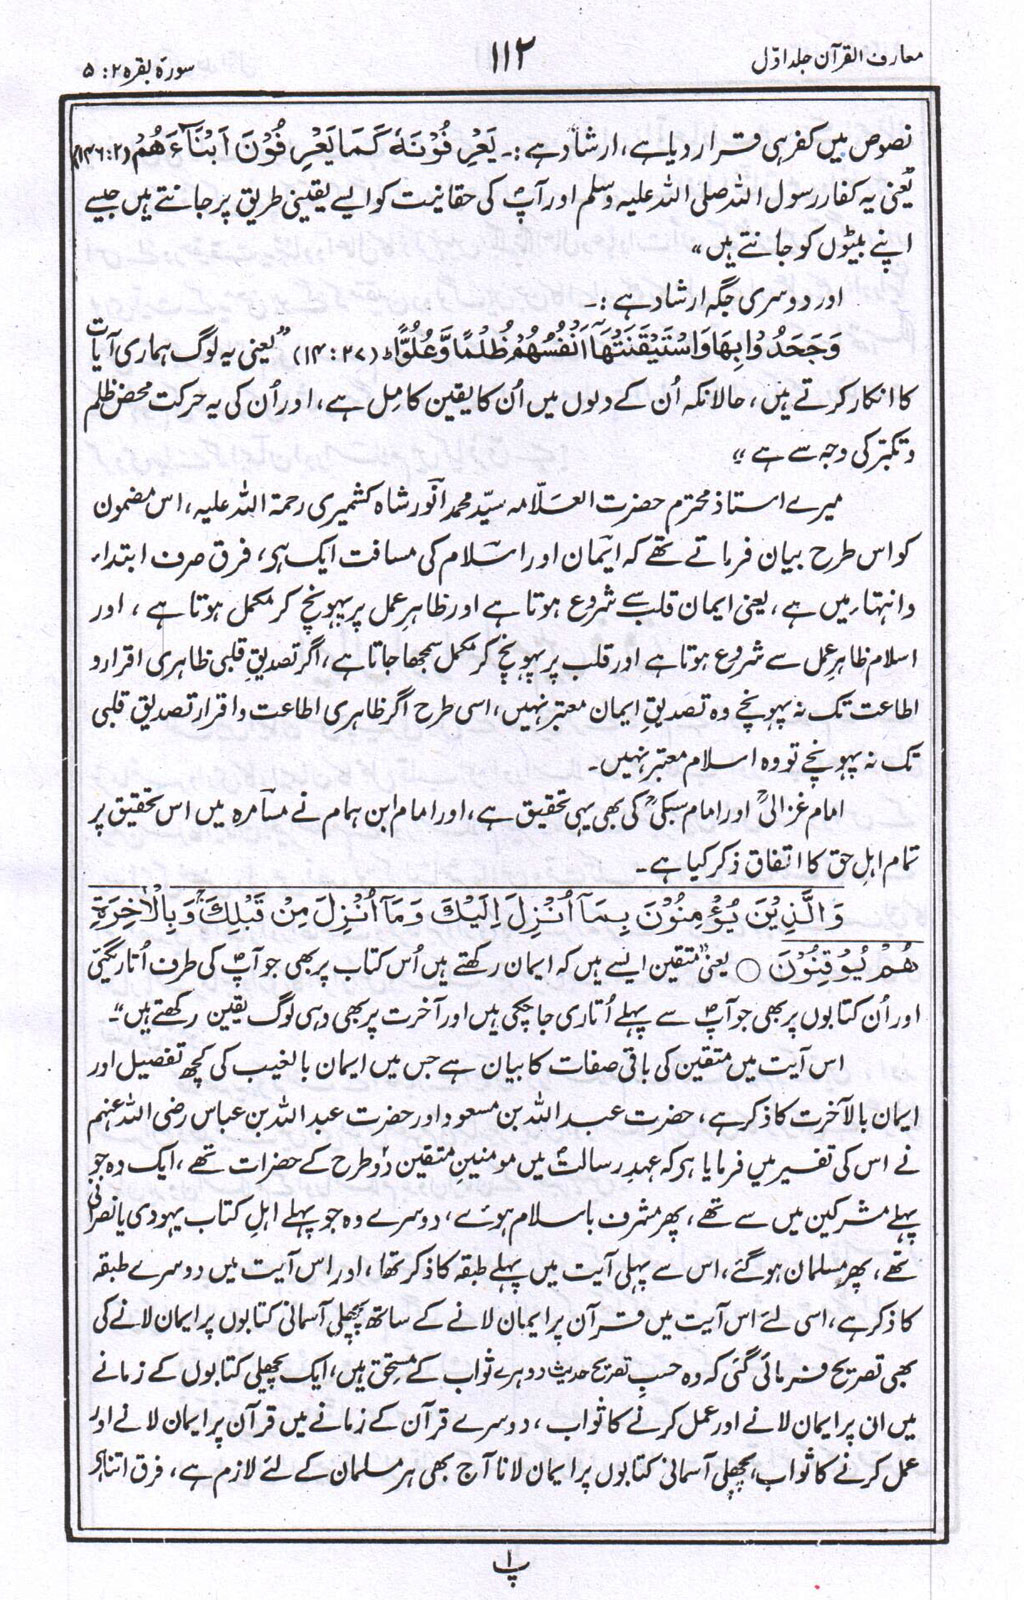 معارف القرآن جلد اوّل
۱۱۲
سورۃ بقرہ ۲ : ۵
نصوص میں کفر ہی قرار دیا ہے، ارشاد ہے :۔ یَعْرِفُوْنَهٗ كَمَا یَعْرِفُوْنَ اَبْنَآءَهُمْ (۲:۱۴۶)
یعنی یہ کفار رسول اللہ صلی اللہ علیہ وسلم اور آپؐ کی حقانیت کو ایسے یقینی طریق پر جانتے ہیں جیسے
اپنے بیٹوں کو جانتے ہیں »
اور دوسری جگہ ارشاد ہے :۔
وَجَحَدُوْا بِهَا وَاسْتَيْقَنَتْهَآ اَنْفُسُهُمْ ظُلْمًا وَّعُلُوًّا ط (۲۷ : ۱۴) " یعنی یہ لوگ ہماری آیات
کا انکار کرتے ہیں، حالانکہ اُن کے دلوں میں اُن کا یقین کامِل ہے، اور اُن کی یہ حرکت محض ظلم
و تکبّر کی وجہ سے ہے "
میرے استاذ محترم حضرت العلّامہ سیّد محمد انور شاہ کشمیری رحمۃ اللہ علیہ، اس مضمون
کو اس طرح بیان فرماتے تھے کہ ایمان اور اسلام کی مسافت ایک ہی، فرق صرف ابتداء
و انتہاء میں ہے، یعنی ایمان قلب سے شروع ہوتا ہے اور ظاہر عمل پر پہونچ کر مکمل ہوتا ہے، اور
اسلام ظاہر عمل سے شروع ہوتا ہے اور قلب پر پہونچ کر مکمل سمجھا جاتا ہے، اگر تصدیقِ قلبی ظاہری اقرار و
اطاعت تک نہ پہونچے وہ تصدیق ایمان معتبر نہیں، اسی طرح اگر ظاہری اطاعت و اقرار تصدیق قلبی
تک نہ پہونچے تو وہ اسلام معتبر نہیں۔
امام غزالیؒ اور امام سبکیؒ کی بھی یہی تحقیق ہے، اور امام ابن ہمام نے مسامرہ میں اس تحقیق پر
تمام اہلِ حق کا اتفاق ذکر کیا ہے۔
وَالَّذِيْنَ يُؤْمِنُوْنَ بِمَآ اُنْزِلَ اِلَيْكَ وَمَآ اُنْزِلَ مِنْ قَبْلِكَ ۚ وَبِالْاٰخِرَةِ
هُمْ يُوْقِنُوْنَ ○ یعنی "متقین ایسے ہیں کہ ایمان رکھتے ہیں اُس کتاب پر بھی جو آپؐ کی طرف اُتاری گئی
اور اُن کتابوں پر بھی جو آپؐ سے پہلے اُتاری جا چکی ہیں اور آخرت پر بھی وہی لوگ یقین رکھتے ہیں"۔
اس آیت میں متقین کی باقی صفات کا بیان ہے جس میں ایمان بالغیب کی کچھ تفصیل اور
ایمان بالآخرت کا ذکر ہے، حضرت عبد اللہ بن مسعود اور حضرت عبد اللہ بن عباس رضی اللہ عنہم
نے اس کی تفسیر میں فرمایا ہی کہ عہدِ رسالت میں مومنین متقین دو طرح کے حضرات تھے، ایک وہ جو
پہلے مشرکین میں سے تھے، پھر مشرف باسلام ہوئے، دوسرے وہ جو پہلے اہلِ کتاب یہودی یا نصرانی
تھے، پھر مسلمان ہو گئے، اس سے پہلی آیت میں پہلے طبقہ کا ذکر تھا، اور اس آیت میں دوسرے طبقہ
کا ذکر ہے، اسی لئے اس آیت میں قرآن پر ایمان لانے کے ساتھ پچھلی آسمانی کتابوں پر ایمان لانے کی
بھی تصریح فرمائی گئی کہ وہ حسبِ تصریح حدیث دوہرے ثواب کے مستحق ہیں، ایک پچھلی کتابوں کے زمانے
میں ان پر ایمان لانے اور عمل کرنے کا ثواب، دوسرے قرآن کے زمانے میں قرآن پر ایمان لانے اور
عمل کرنے کا ثواب، پچھلی آسمانی کتابوں پر ایمان لانا آج بھی ہر مسلمان کے لئے لازم ہے، فرق اتنا ہی
پ۱